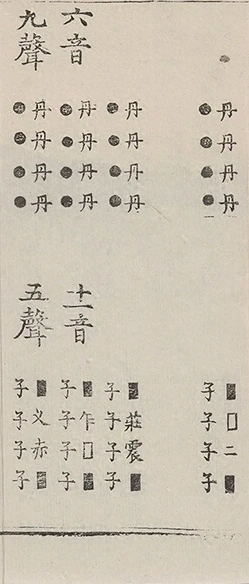 丹丹丹丹
●●●●
丹丹丹丹
●●●●
六音
丹丹丹丹
●●●●
九聲
丹丹丹丹
●●●●
■□二■
子子子子
■莊震■
子子子子
十一音
■乍□■
子子子子
五聲
■叉赤■
子子子子